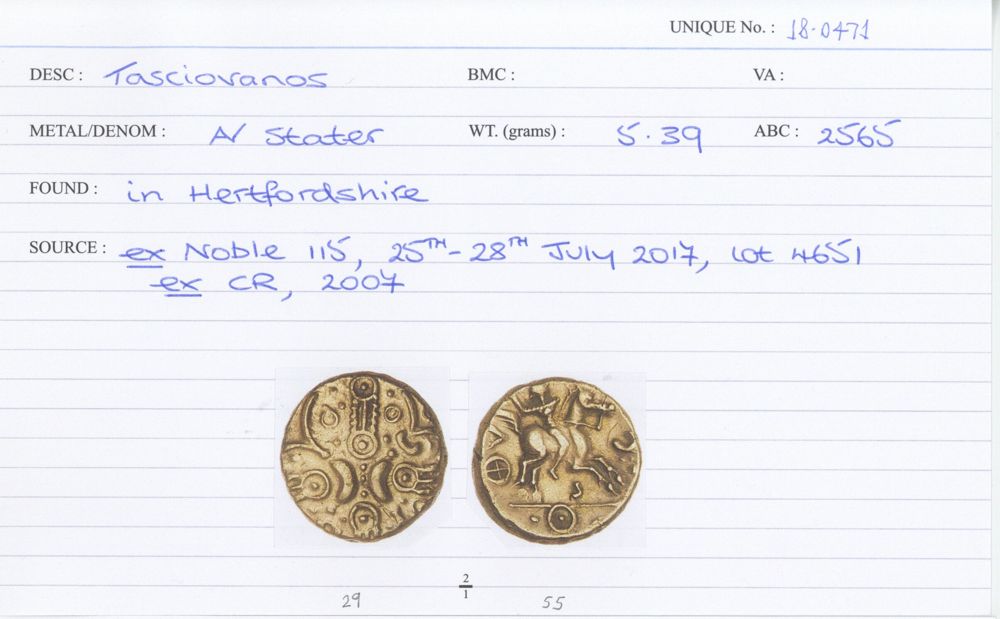 UNIQUE No. : 18.0471
DESC : Tasciovanos BMC : VA :
METAL/DENOM : A/ Stater WT. (grams) : 5.39 ABC : 2565
FOUND : in Hertfordshire
SOURCE : ex Noble 115, 25TH-28TH July 2017, lot 4651
ex CR, 2007
2
1
29 55